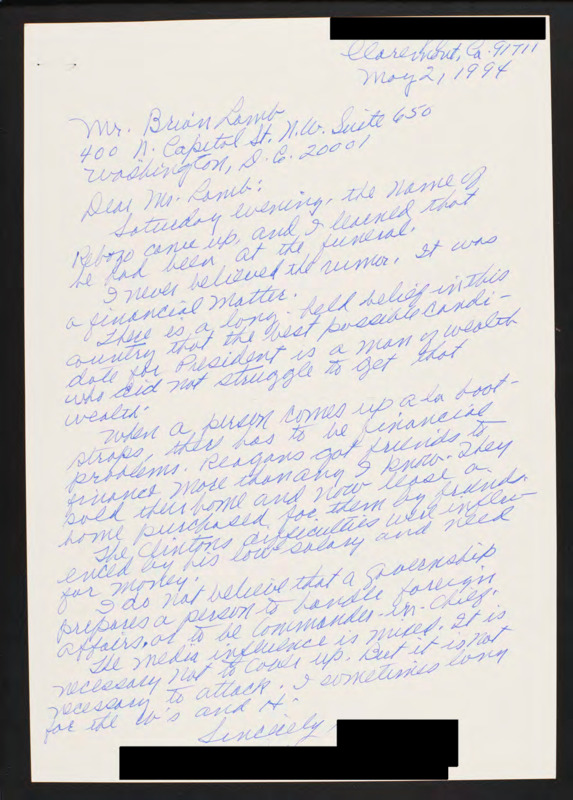 Claremont, Ca. 91711
May 2, 1994
Mr. Brian Lamb
400 N. Capitol St. N.W. Suite 650
Washington, D.C. 20001
Dear Mr. Lamb:
Saturday evening, the name of
Rebozo came up, and I learned that
he had been at the funeral.
I never believed the rumor. It was
a financial matter.
There is a long-held belief in this
country that the best possible candi-
date for President is a man of wealth
who did not struggle to get that
wealth.
When a person comes up a la boot-
straps, there has to be financial
problems. Reagans got friends to
finance more than any I know. They
sold their home and now lease a
home purchased for them by friends.
The Clintons difficulties were influ-
enced by his low salary and need
for money.
I do not believe that a governship
prepares a person to handle foreign
affairs, or to be Commander-in-Chief.
The media influence is mixed. It is
necessary not to cover up. But it is not
necessary to attack. I sometimes long
for the W's and H.
Sincerely,